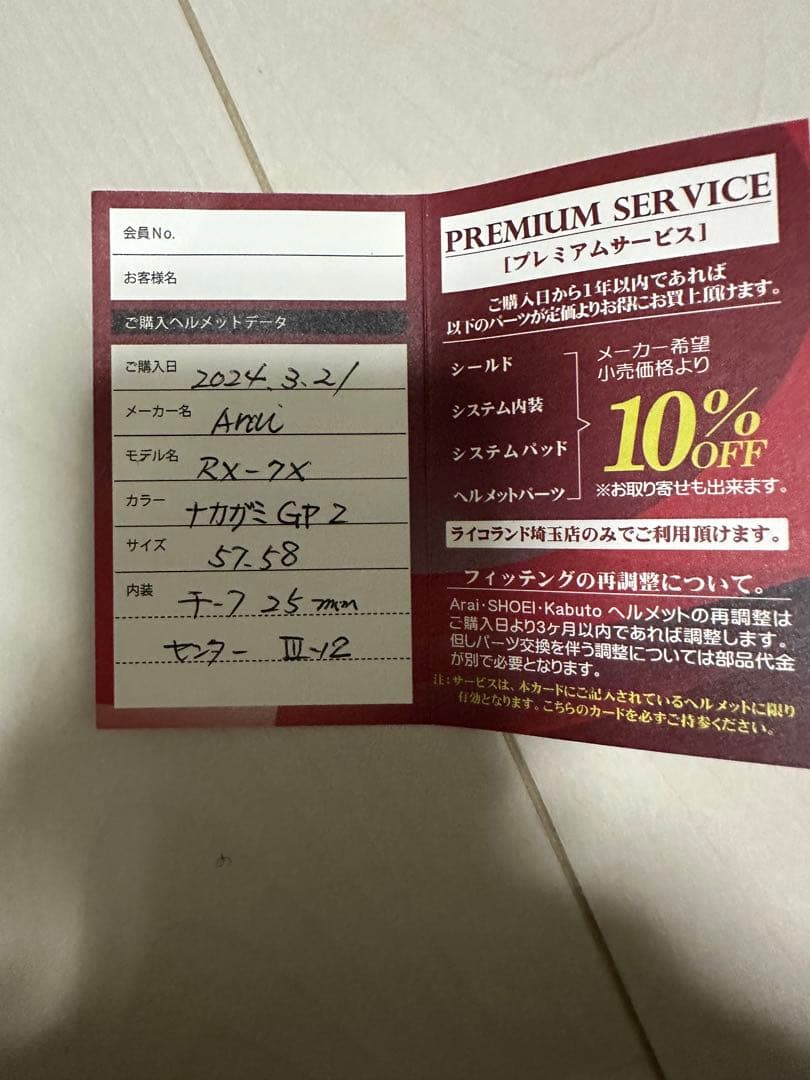 会員No.
お客様名
ご購入ヘルメットデータ
ご購入日 2024.3.21
メーカー名 Arai
モデル名 RX-7X
カラー ナカガミ GP 2
サイズ 57-58
内装 チ-7 25mm
センター III-12
PREMIUM SERVICE
[プレミアムサービス]
ご購入日から1年以内であれば
以下のパーツが定価よりお得にお買上頂けます。
シールド
システム内装
システムパッド
ヘルメットパーツ
メーカー希望
小売価格より
10%OFF
※お取り寄せも出来ます。
ライコランド埼玉店のみでご利用頂けます。
フィッテングの再調整について。
Arai・SHOEI・Kabuto ヘルメットの再調整は
ご購入日より3ヶ月以内であれば調整します。
但しパーツ交換を伴う調整については部品代金
が別で必要となります。
注:サービスは、本カードにご記入されているヘルメットに限り
有効となります。こちらのカードを必ずご持参ください。